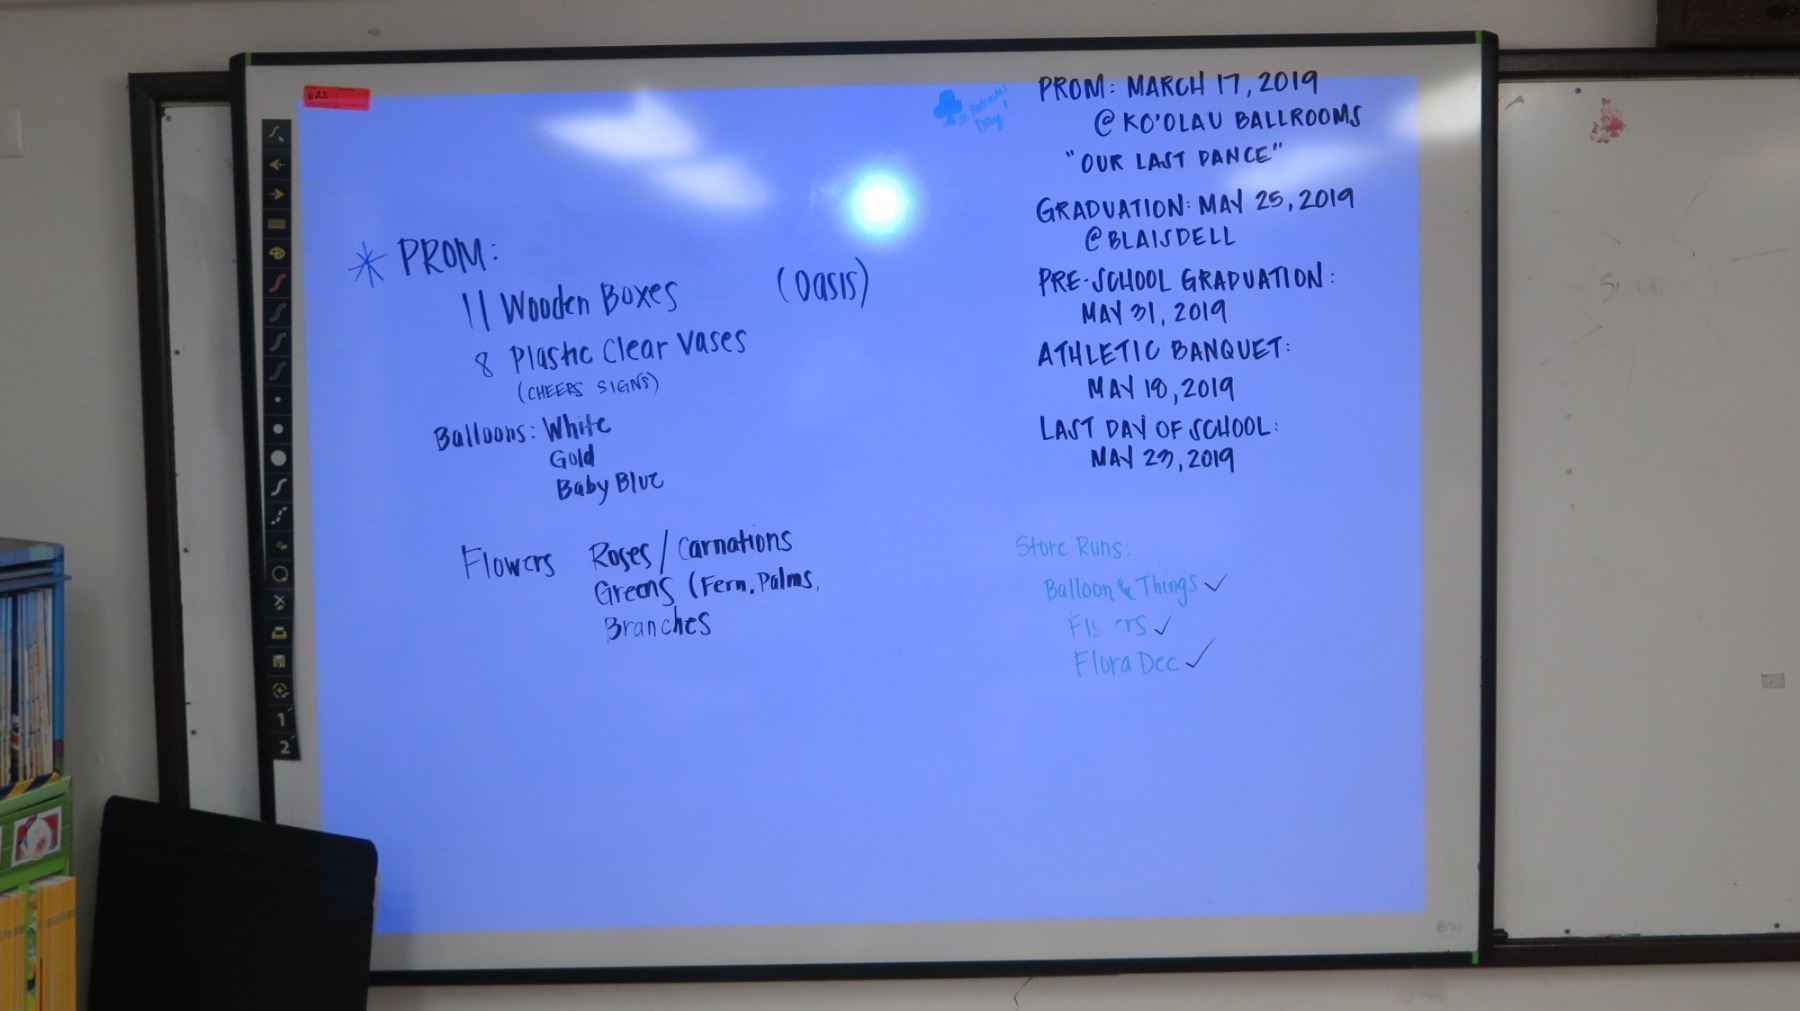 625
* PROM:
11 Wooden Boxes (Oasis)
8 Plastic Clear Vases
(CHEERS SIGNS)
Balloons: White
Gold
Baby Blue
Flowers Roses / Carnations
Greens (Fern, Palms,
Branches
Day!
PROM: MARCH 17, 2019
@ KO'OLAU BALLROOMS
"OUR LAST DANCE"
GRADUATION: MAY 25, 2019
@BLAISDELL
PRE-SCHOOL GRADUATION:
MAY 31, 2019
ATHLETIC BANQUET:
MAY 18, 2019
LAST DAY OF SCHOOL:
MAY 23, 2019
Store Runs:
Balloon & Things ✓
✓
Flora Dec ✓
1
2
eno